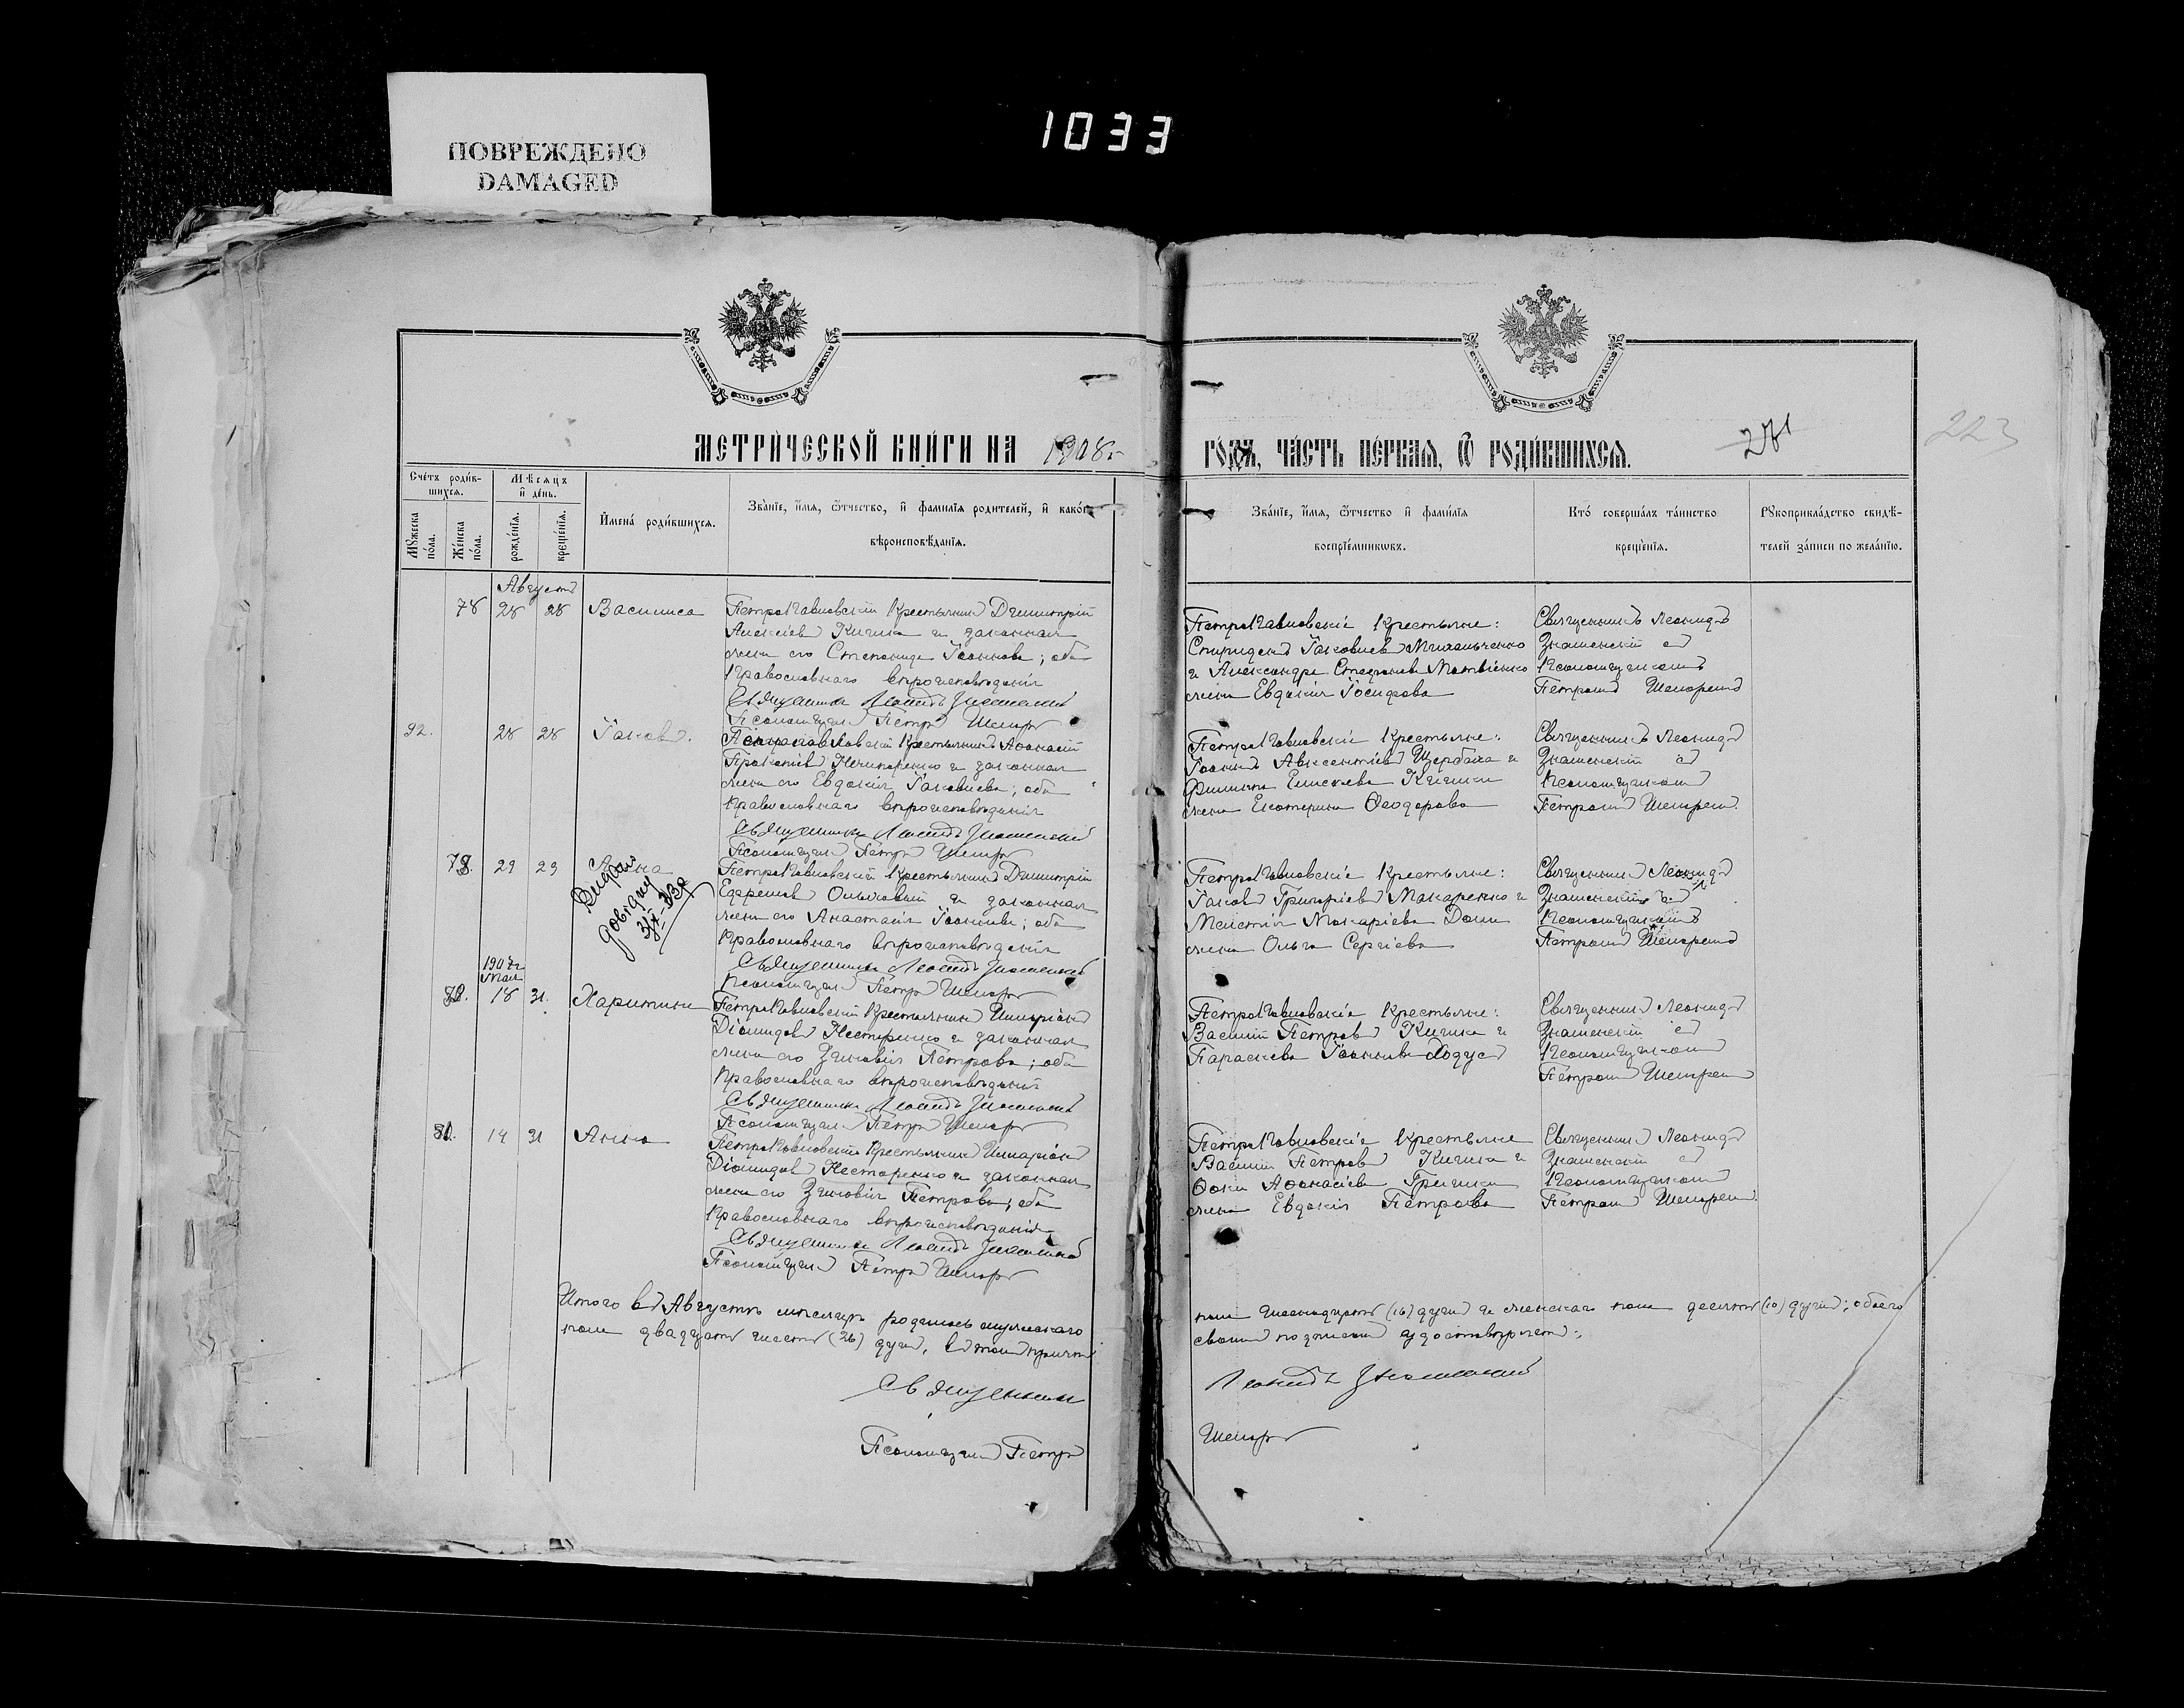 ПОВРЕЖДЕНО
DAMAGED
1033
МЕТРИЧЕСКОЙ КНИГИ НА 1908 г.
ГОДЪ, ЧАСТЬ ПЕРВАЯ, Ѡ РОДИВШИХСЯ.
223
Счетъ родив-
шихся.
Мѣсяцъ
и день.
Мужеска
пола.
Женска
пола.
рожденія.
крещенія.
Имена родившихся.
Званіе, имя, ѿчество, и фамилія родителей, и какого
вѣроисповѣданія.
Званіе, имя, ѿчество и фамилія
воспріемниковъ.
Кто совершалъ таинство
крещенія.
Рукоприкладство свидѣ-
телей записи по желанію.
Августъ
78 28 28 Василиса
ПетроПавловскій крестьянинъ Димитрій
Алексіевъ Кичка и законная
жена его Степанида Іоаннова; оба
Православнаго вѣроисповѣданія
Священникъ Леонидъ Знаменскій
Псаломщикъ Петръ
ПетроПавловскіе крестьяне:
Спиридонъ Іаковлевъ Михальченко
и Александра Стефанова Матвіенко
жена Евдокія Іосифова
Священникъ Леонидъ
Знаменскій съ
Псаломщикомъ
Петромъ
92. 28 28 Іаковъ.
ПетроПавловскій крестьянинъ Аѳанасій
Прокопіевъ Нечипоренко и законная
жена его Евдокія Іаковлева; оба
Православнаго вѣроисповѣданія
Священникъ Леонидъ Знаменскій
Псаломщикъ Петръ
ПетроПавловскіе крестьяне:
Іоаннъ Авксентіевъ Щербака и
Филиппа Елисеева Кички
жена Екатерина Ѳеодорова
Священникъ Леонидъ
Знаменскій съ
Псаломщикомъ
Петромъ
79. 29 29 Анна
Видано
довідку
ПетроПавловскій крестьянинъ Димитрій
Ефремовъ и законная
жена его Анастасія Іоаннова; оба
Православнаго вѣроисповѣданія
Священникъ Леонидъ Знаменскій
Псаломщикъ Петръ
ПетроПавловскіе крестьяне:
Іаковъ Григоріевъ Макаренко и
Макаріева
жена Ольга Сергіева
Священникъ Леонидъ
Знаменскій съ
Псаломщикомъ
Петромъ
1907 г.
Мая
80. 18 31. Харитина
ПетроПавловскій крестьянинъ Иларіонъ
Діомидовъ Нестеренко и законная
жена его Зиновія Петрова; оба
Православнаго вѣроисповѣданія
Священникъ Леонидъ Знаменскій
Псаломщикъ Петръ
ПетроПавловскіе крестьяне:
Василій Петровъ Кичка и
Параскева Іоаннова Ходусъ
Священникъ Леонидъ
Знаменскій съ
Псаломщикомъ
Петромъ
81. 14 31 Анна
ПетроПавловскій крестьянинъ Иларіонъ
Діомидовъ Нестеренко и законная
жена его Зиновія Петрова; оба
Православнаго вѣроисповѣданія
Священникъ Леонидъ Знаменскій
Псаломщикъ Петръ
ПетроПавловскіе крестьяне
Василій Петровъ Кичка и
Ѳоки Аѳанасіева
жена Евдокія Петрова
Священникъ Леонидъ
Знаменскій съ
Псаломщикомъ
Петромъ
Итого въ Августѣ мѣсяцѣ родилось мужескаго
пола шестнадцать (16) душъ и женскаго пола десять (10) душъ; обоего
пола двадцать шесть (26) душъ, въ томъ причтъ
своимъ подписомъ удостовѣряетъ:
Священникъ Леонидъ Знаменскій
Псаломщикъ Петръ